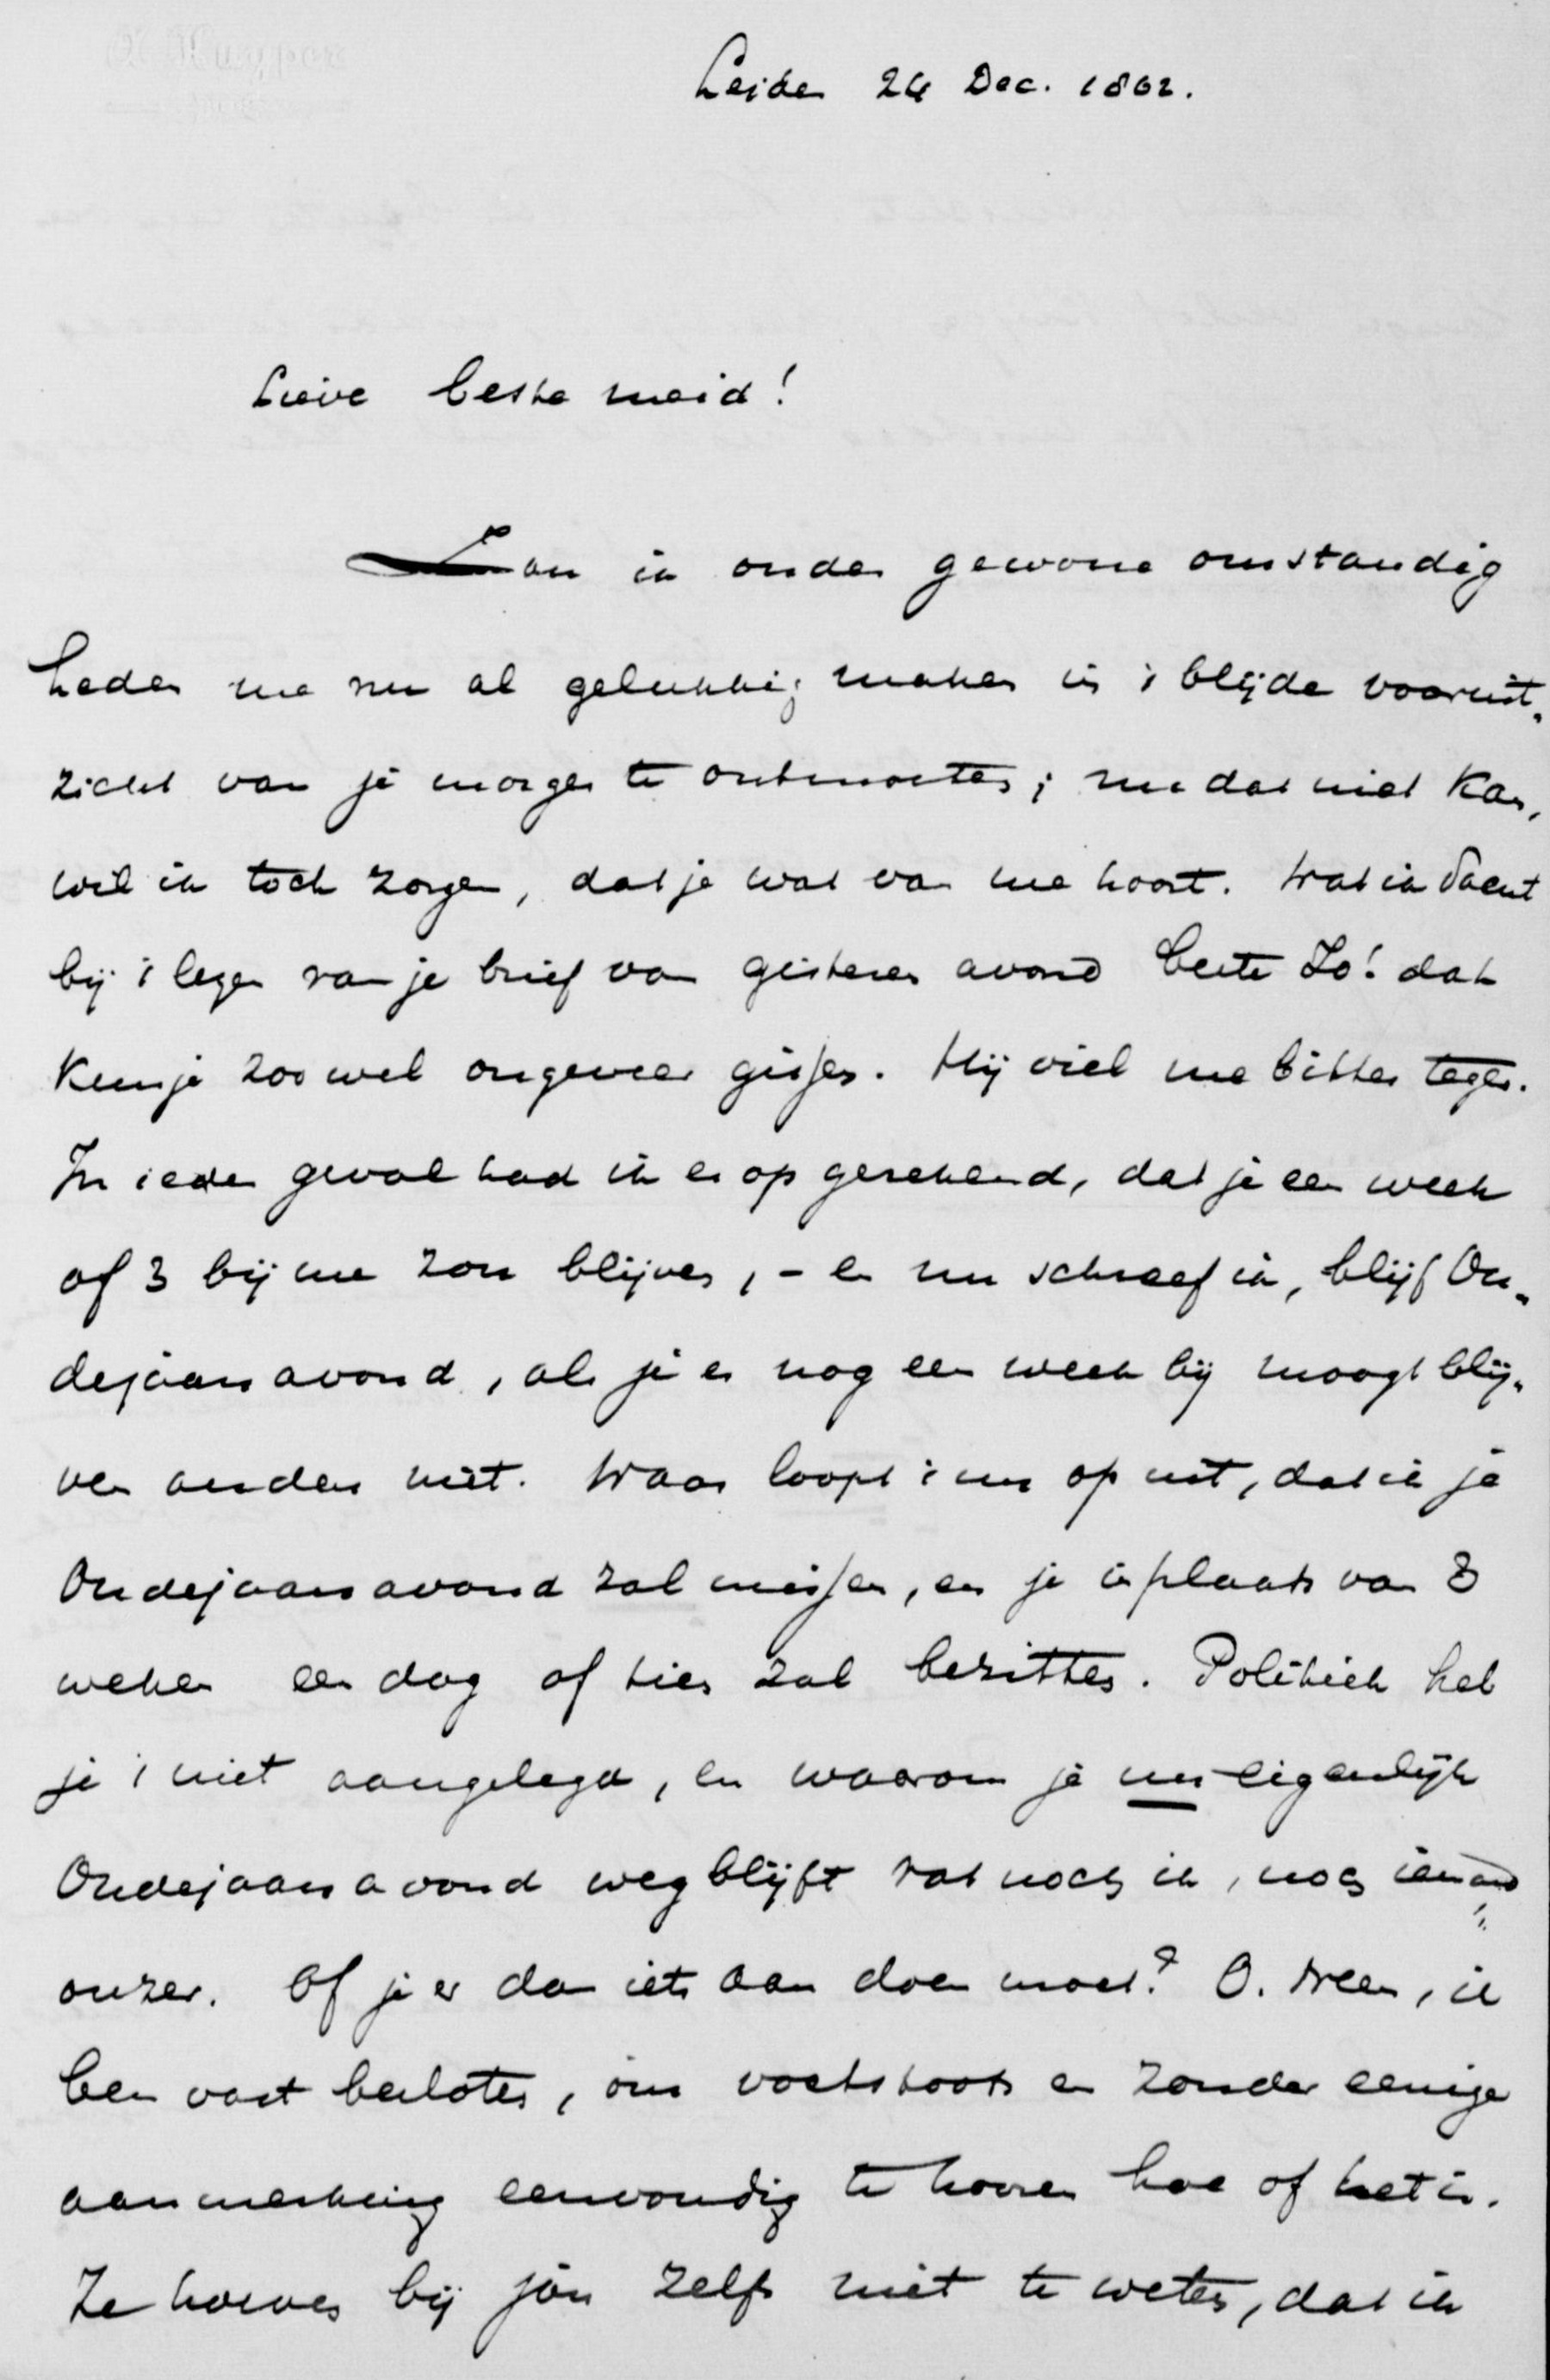 Leiden 24 Dec. 1862.
Lieve beste meid!
Kon ik onder gewone omstandig
heden me nu al gelukkig maken in 't blijde vooruit„
zicht van je morgen te ontmoeten; nu dat niet kan,
wil ik toch zorgen, dat je wat van me hoort. Wat ik dacht
bij 't lezen van je brief van gisteren avond beste Jo! dat
kun je zoo wel ongeveer gissen. Hij viel me bitter tegen.
In ieder geval had ik er op gerekend, dat je een week
of 3 bij me zou blijven, - en nu schreef ik, blijf Ou„
dejaars avond, als je er nog een week bij moogt blij„
ven anders niet. Waar loopt 't nu op uit, dat ik je
Oudejaars avond zal missen, en je in plaats van 3
weken een dag of tien zal bezitten. Politiek heb
je 't niet aangelegd, en waarom je nu eigenlijk
Oudejaars avond weg blijft vat noch ik, noch iemand
onzer. Of je er dan iets aan doen moet? O. Neen, ik
ben vast besloten, om voetstoots en zonder eenige
aanmerking eenvoudig te hooren hoe of het is.
Ze hoeven bij jou zelfs niet te weten, dat ik